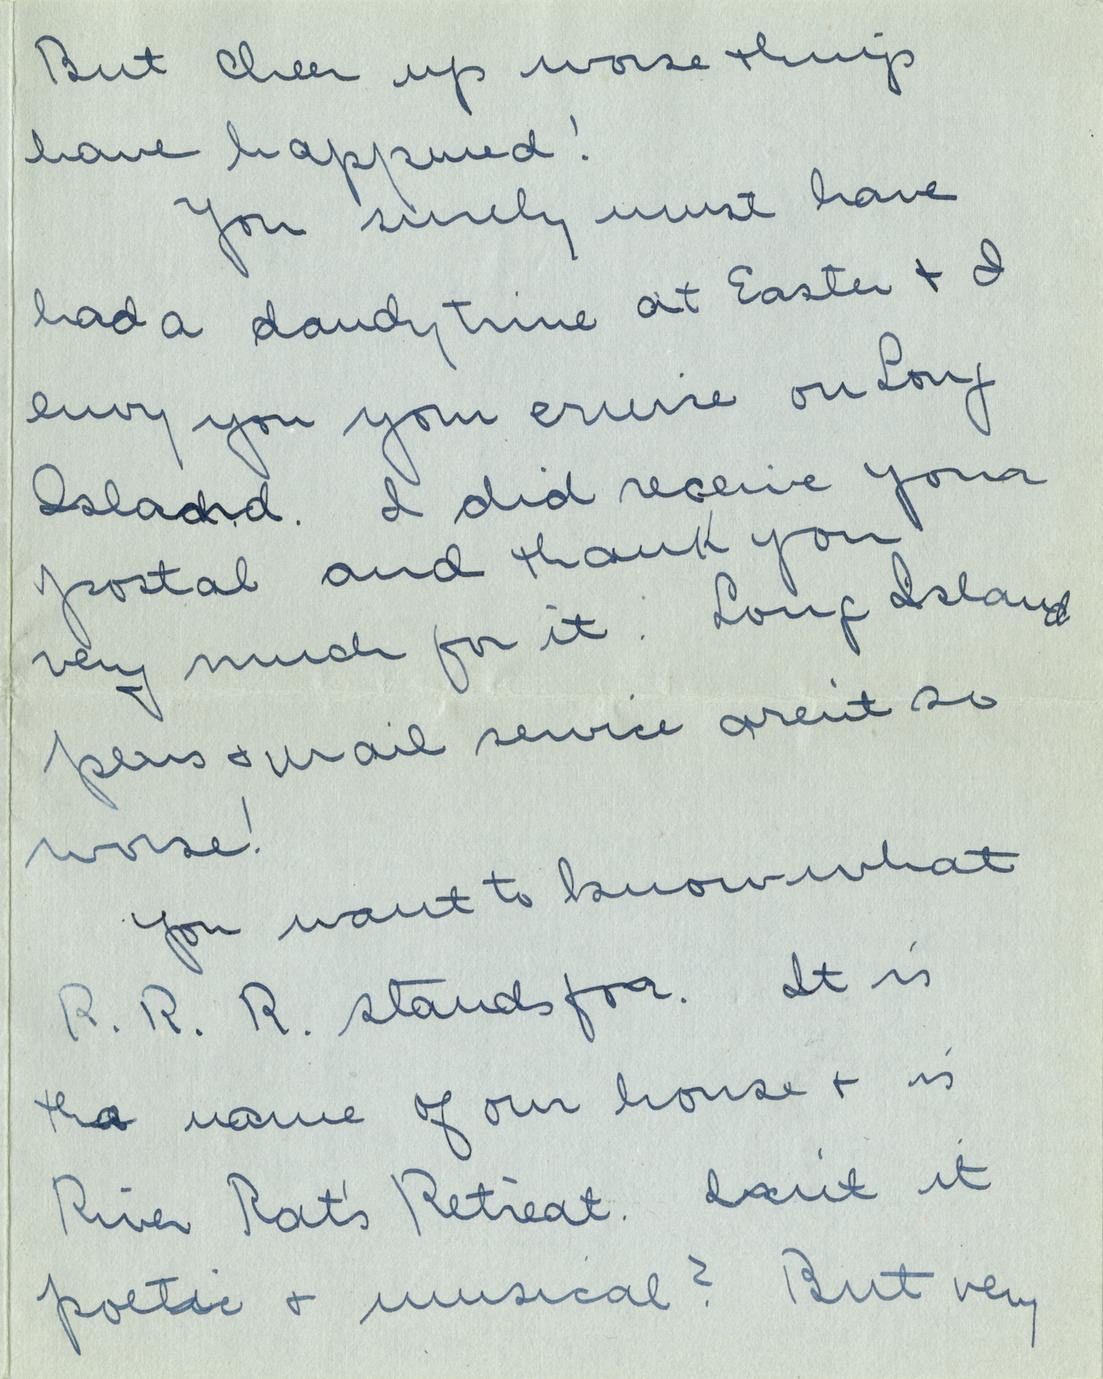 But cheer up worse things
have happened!
You surely must have
had a dandy time at Easter + I
envy you your cruise on Long
Island. I did receive your
postal and thank you
very much for it. Long Island
pens + mail service aren't so
worse!
You want to know what
R. R. R. stands for. It is
the name of our house + is
River Rat's Retreat. Isn't it
poetic + musical? But very